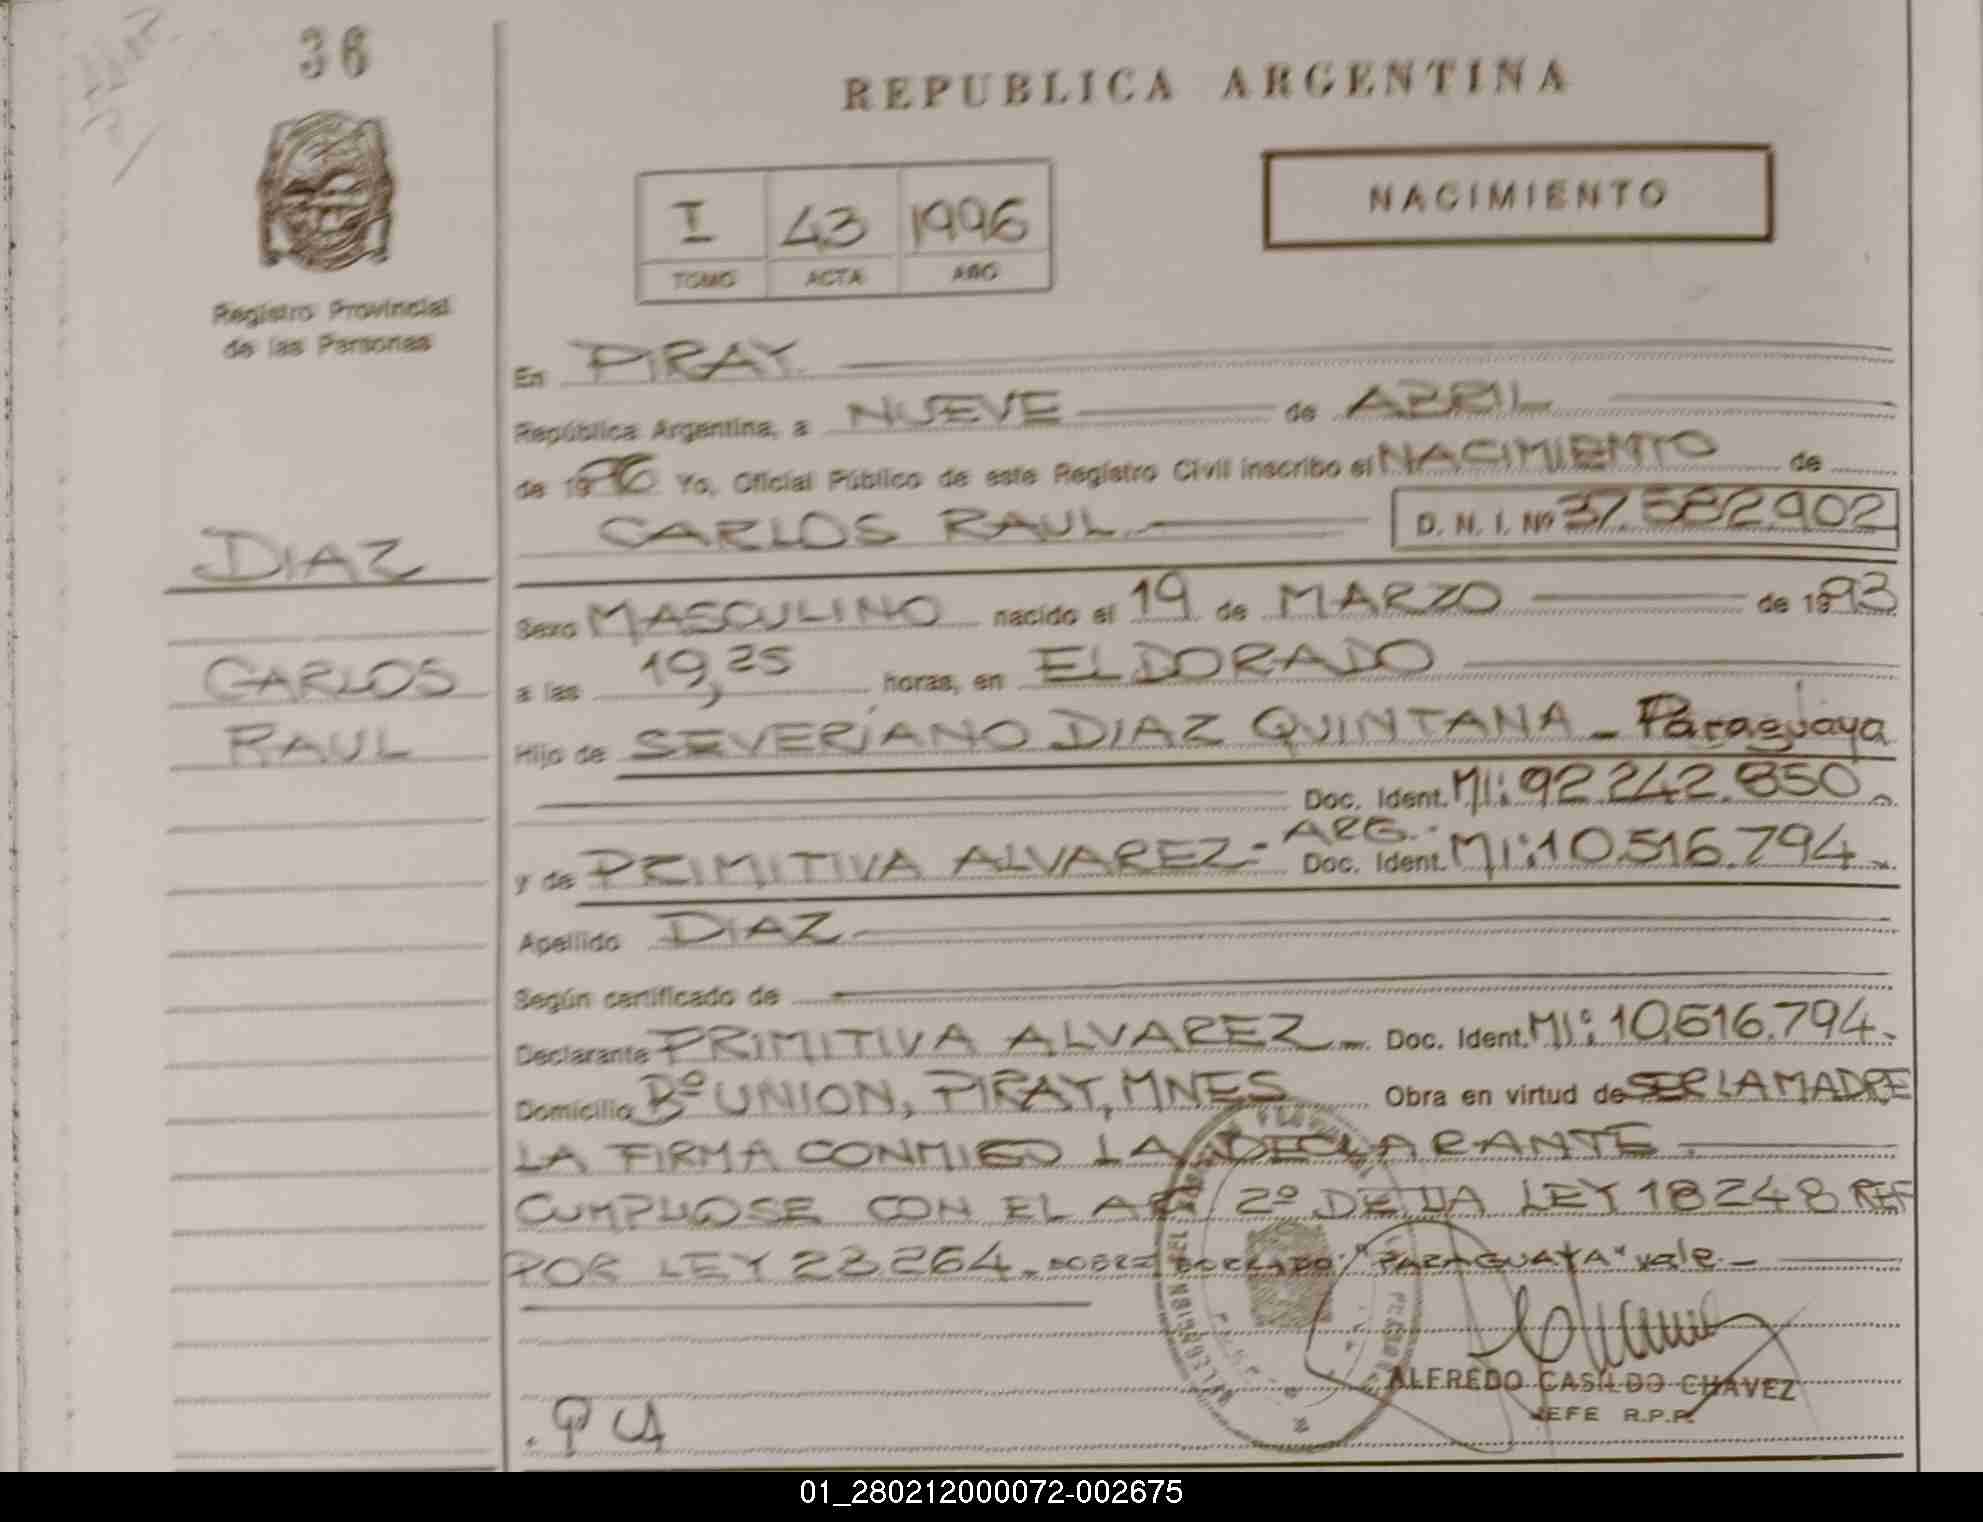 36
REPUBLICA ARGENTINA
NACIMIENTO
I 43 1996
TOMO ACTA AÑO
Registro Provincial
de las Personas
En PIRAY
República Argentina, a NUEVE de ABRIL
de 1996 Yo, Oficial Público de este Registro Civil inscribo el NACIMIENTO de
CARLOS RAUL D. N. I. Nº 37.582.902
DIAZ
Sexo MASCULINO nacido el 19 de MARZO de 1993
CARLOS
a las 19,25 horas, en ELDORADO
RAUL
Hijo de SEVERIANO DIAZ QUINTANA - Paraguaya
Doc. Ident. MI: 92.242.850.
y de PRIMITIVA ALVAREZ - ARG.- Doc. Ident. MI: 10.516.794.
Apellido DIAZ
Según certificado de
Declarante PRIMITIVA ALVAREZ Doc. Ident. MI: 10.516.794.
Domicilio Bº UNION, PIRAY, MNES Obra en virtud de SER LA MADRE
LA FIRMA CONMIGO LA DECLARANTE.
CUMPLIOSE CON EL ART 2º DE LA LEY 18248 REF
POR LEY 23.264. SOBRE BORRADO: "PARAGUAYA" vale.-
ALFREDO CASILDO CHAVEZ
JEFE R.P.P.
01_280212000072-002675